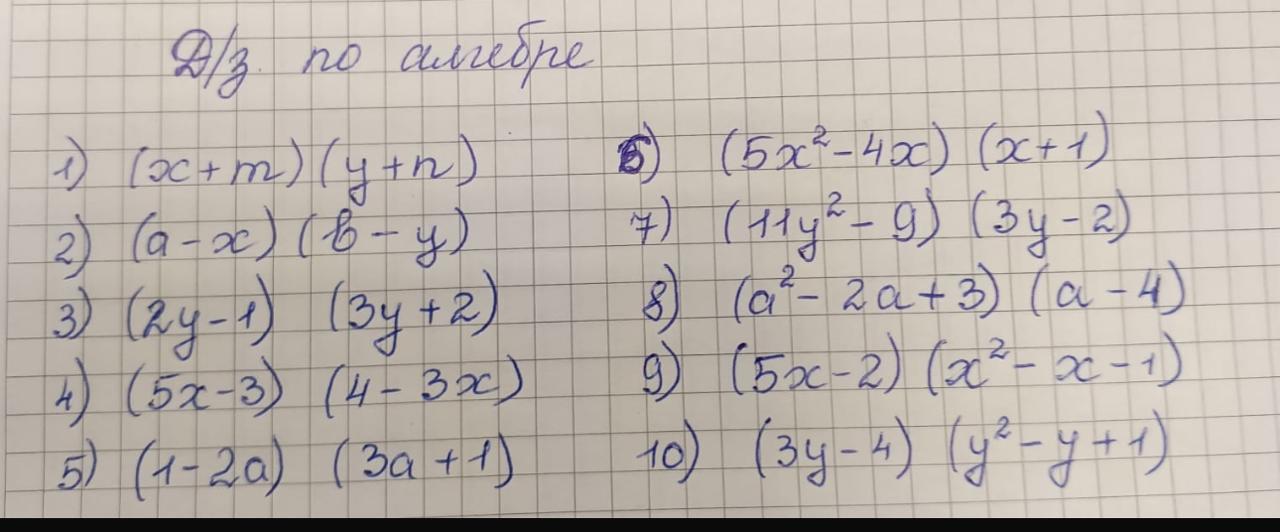 Д/з. по алгебре
1) (x+m)(y+n)
2) (a-x)(b-y)
3) (2y-1) (3y+2)
4) (5x-3) (4-3x)
5) (1-2a) (3a+1)
6) (5x²-4x) (x+1)
7) (11y²-9) (3y-2)
8) (a²-2a+3) (a-4)
9) (5x-2) (x²-x-1)
10) (3y-4) (y²-y+1)